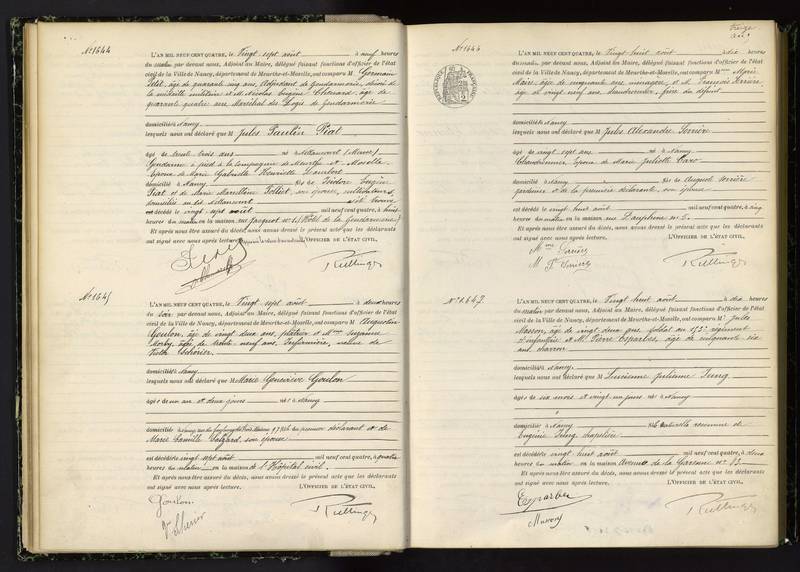 N° 1644
L'AN MIL NEUF CENT QUATRE, le Vingt sept août à neuf heures
du matin par devant nous, Adjoint au Maire, délégué faisant fonctions d'officier de l'état
civil de la Ville de Nancy, département de Meurthe-et-Moselle, ont comparu M Germain
Petit, âgé de quarante cinq ans, Adjudant de Gendarmerie, décoré de
la médaille militaire et M. Nicolas Eugène Chenard, âgé de
quarante quatre ans Maréchal des Logis de Gendarmerie
domiciliés à Nancy
lesquels nous ont déclaré que M Jules Paulin Piat
âgé de trente trois ans né à
Gendarme à pied à la Compagnie de Meurthe et Moselle
époux de Marie Gabrielle Henriette Lambert
domicilié à Nancy fils de Isidore Eugène
Piat et de Marie Marcelline Folliet, son épouse, cultivateurs,
domiciliés au dit
est décédé le vingt sept août mil neuf cent quatre, à huit
heures du matin en la maison rue Jacquot n° 1 (Hôtel de la Gendarmerie)
Et après nous être assuré du décès, nous avons dressé le présent acte que les déclarants
ont signé avec nous après lecture. L'OFFICIER DE L'ÉTAT CIVIL,
N° 1645
L'AN MIL NEUF CENT QUATRE, le Vingt sept août à deux heures
du soir par devant nous, Adjoint au Maire, délégué faisant fonctions d'officier de l'état
civil de la Ville de Nancy, département de Meurthe-et-Moselle, ont comparu M Augustin
Goulon, âgé de vingt deux ans, plâtrier et Mme Suzanne
âgée de trente neuf ans, Infirmière, veuve de
domiciliés à Nancy
lesquels nous ont déclaré que M Marie Geneviève Goulon
âgée de un an et deux jours née à Nancy
domiciliée à Nancy fille du premier déclarant et de
Marie Camille son épouse
est décédée le vingt sept août mil neuf cent quatre, à quatre
heures du matin en la maison de l'Hôpital civil.
Et après nous être assuré du décès, nous avons dressé le présent acte que les déclarants
ont signé avec nous après lecture. L'OFFICIER DE L'ÉTAT CIVIL,
Goulon
N° 1646
L'AN MIL NEUF CENT QUATRE, le Vingt huit août à dix heures
du matin par devant nous, Adjoint au Maire, délégué faisant fonctions d'officier de l'état
civil de la Ville de Nancy, département de Meurthe-et-Moselle, ont comparu Mme Marie
âgée de cinquante ans, ménagère et M. François Ferrière
âgé de vingt neuf ans, frère du défunt
domiciliés à Nancy
lesquels nous ont déclaré que M Jules Alexandre Ferrière
âgé de vingt sept ans né à Nancy
époux de Marie Juliette
domicilié à Nancy fils de Auguste Ferrière
jardinier et de la première déclarante, son épouse
est décédé le vingt huit août mil neuf cent quatre, à cinq
heures du matin en la maison rue
Et après nous être assuré du décès, nous avons dressé le présent acte que les déclarants
ont signé avec nous après lecture. L'OFFICIER DE L'ÉTAT CIVIL,
N° 1647
L'AN MIL NEUF CENT QUATRE, le Vingt huit août à dix heures
du matin par devant nous, Adjoint au Maire, délégué faisant fonctions d'officier de l'état
civil de la Ville de Nancy, département de Meurthe-et-Moselle, ont comparu M. Jules
Masson, âgé de vingt deux ans, soldat au régiment
d'infanterie et M. Pierre Esparbes, âgé de cinquante six
ans, charron
domiciliés à Nancy
lesquels nous ont déclaré que M Lucienne Julienne Jung
âgée de six mois et vingt un jours née à Nancy
domiciliée à Nancy fille naturelle reconnue de
Eugénie Jung
est décédée le vingt huit août mil neuf cent quatre, à deux
heures du matin en la maison Avenue de la Garenne n° 83
Et après nous être assuré du décès, nous avons dressé le présent acte que les déclarants
ont signé avec nous après lecture. L'OFFICIER DE L'ÉTAT CIVIL,
Esparbes
Masson